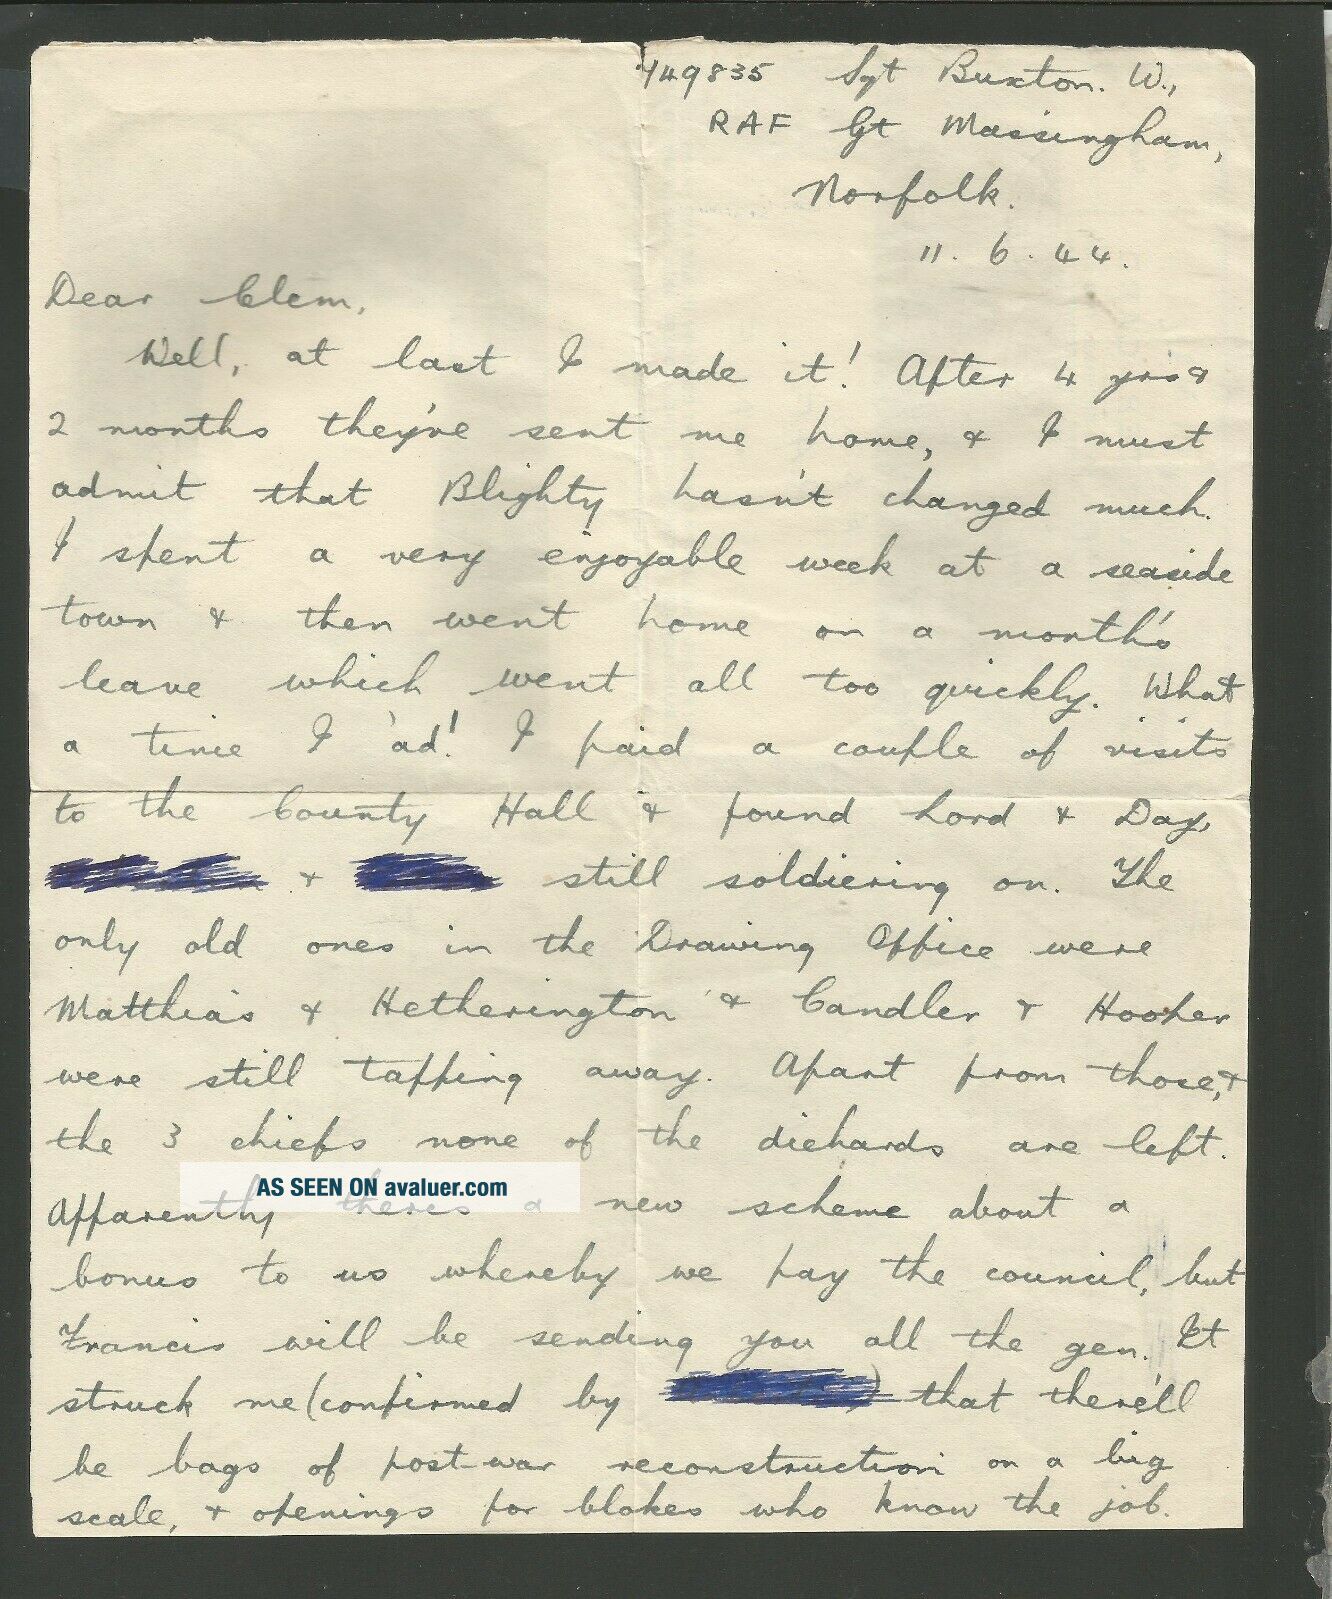 749835 Sgt Buxton. W.,
RAF Gt Massingham,
Norfolk.
11. 6. 44.
Dear Clem,
Well, at last I made it! After 4 yrs &
2 months they've sent me home, & I must
admit that Blighty hasn't changed much.
I spent a very enjoyable week at a seaside
town & then went home on a month's
leave which went all too quickly. What
a time I 'ad! I paid a couple of visits
to the County Hall & found Lord & Day,
& still soldiering on. The
only old ones in the Drawing Office were
Matthias & Hetherington & Candler & Hooker
were still tapping away. Apart from those, &
the 3 chiefs none of the diehards are left.
AS SEEN ON avaluer.com
Apparently there's a new scheme about a
bonus to us whereby we pay the council, but
Francis will be sending you all the gen. It
struck me (confirmed by ) that there'll
be bags of post-war reconstruction on a big
scale, & openings for blokes who know the job.